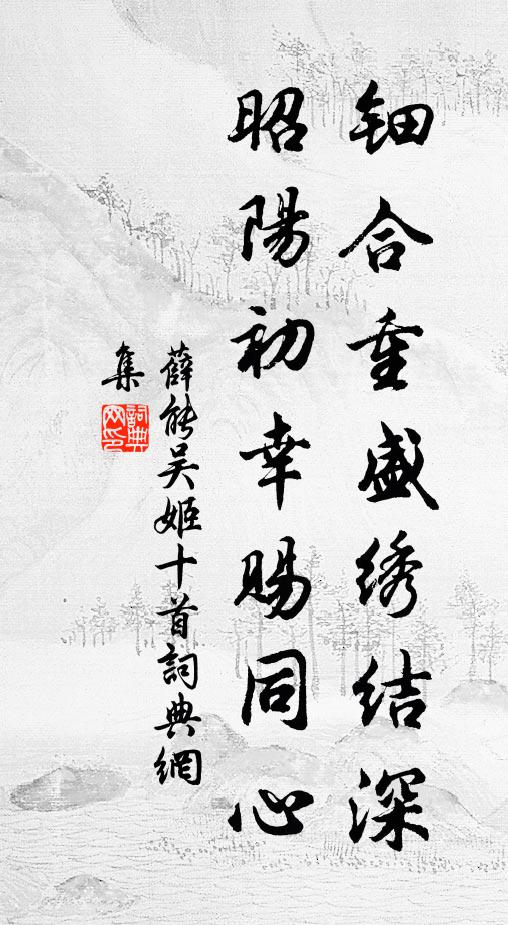 钿合重盛绣结深
昭陽初幸賜同心
薛能吴姬十首詞典網
集
詞典
网印